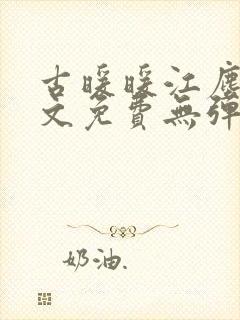 古暖暖江塵
文免費無彈
奶油.